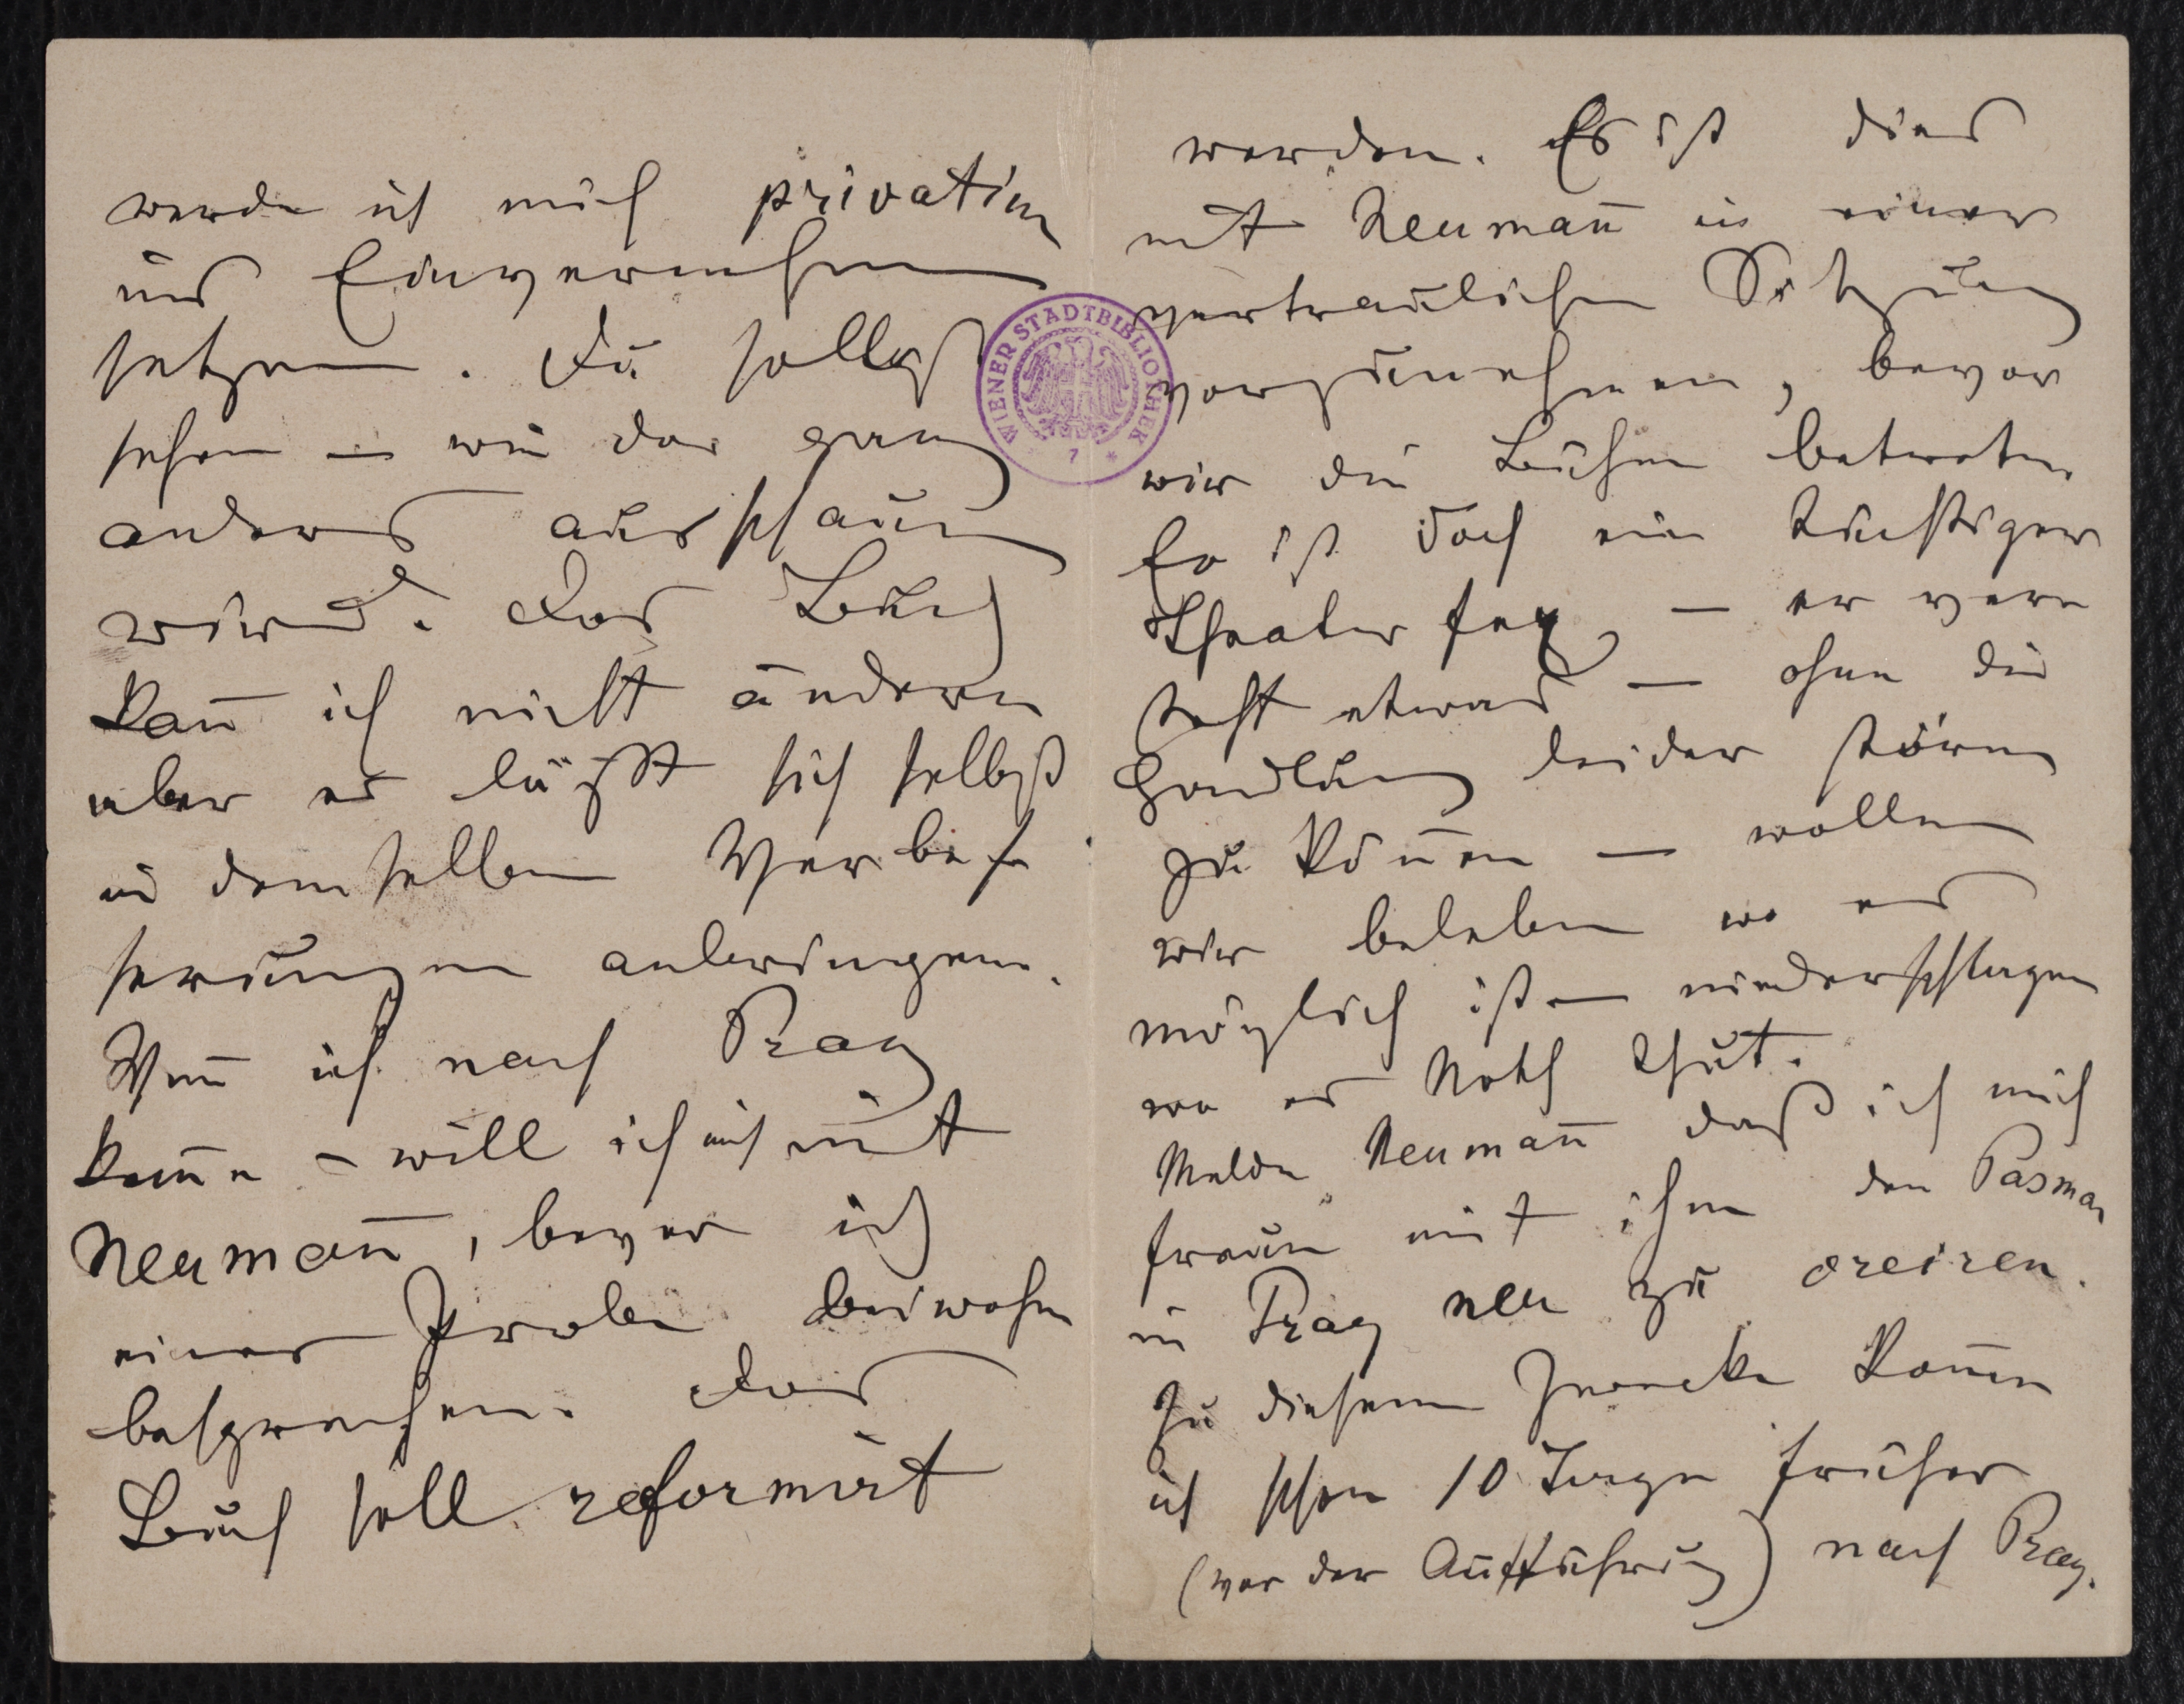 werde ich mich privatim
ins Einvernehmen
setzen. Du sollst
sehen — wie das ganz
anders ausschaun
wird. Das Buch
kan̄ ich nicht ändern
aber es läßt sich selbst
in demselben Verbes
serungen anbringen.
Wen̄ ich nach Prag
kom̄e – will ich mich mit
Neuman̄, bevor ich
einer Probe beiwohne
besprechen. Das
Buch soll reformirt
werden. Es ist dies
mit Neuman̄ in einer
vertraulichen Sitzung
vorzunehmen, bevor
wir die Bühne betreten.
Er ist doch ein tüchtiger
Theaterfex, — er ver
steht etwas — ohne die
Handlung leider stören
zu kön̄en — wollen
wir beleben wo es
möglich ist — niederschlagen
wo es Noth thut.
Melde Neuman̄ daß ich mich
freue mit ihm den Pasman
in Prag neu zu creiren.
Zu diesem Zwecke kom̄e
ich schon 10 Tage früher
(vor der Aufführung) nach Prag.
WIENER STADTBIBLIOTHEK